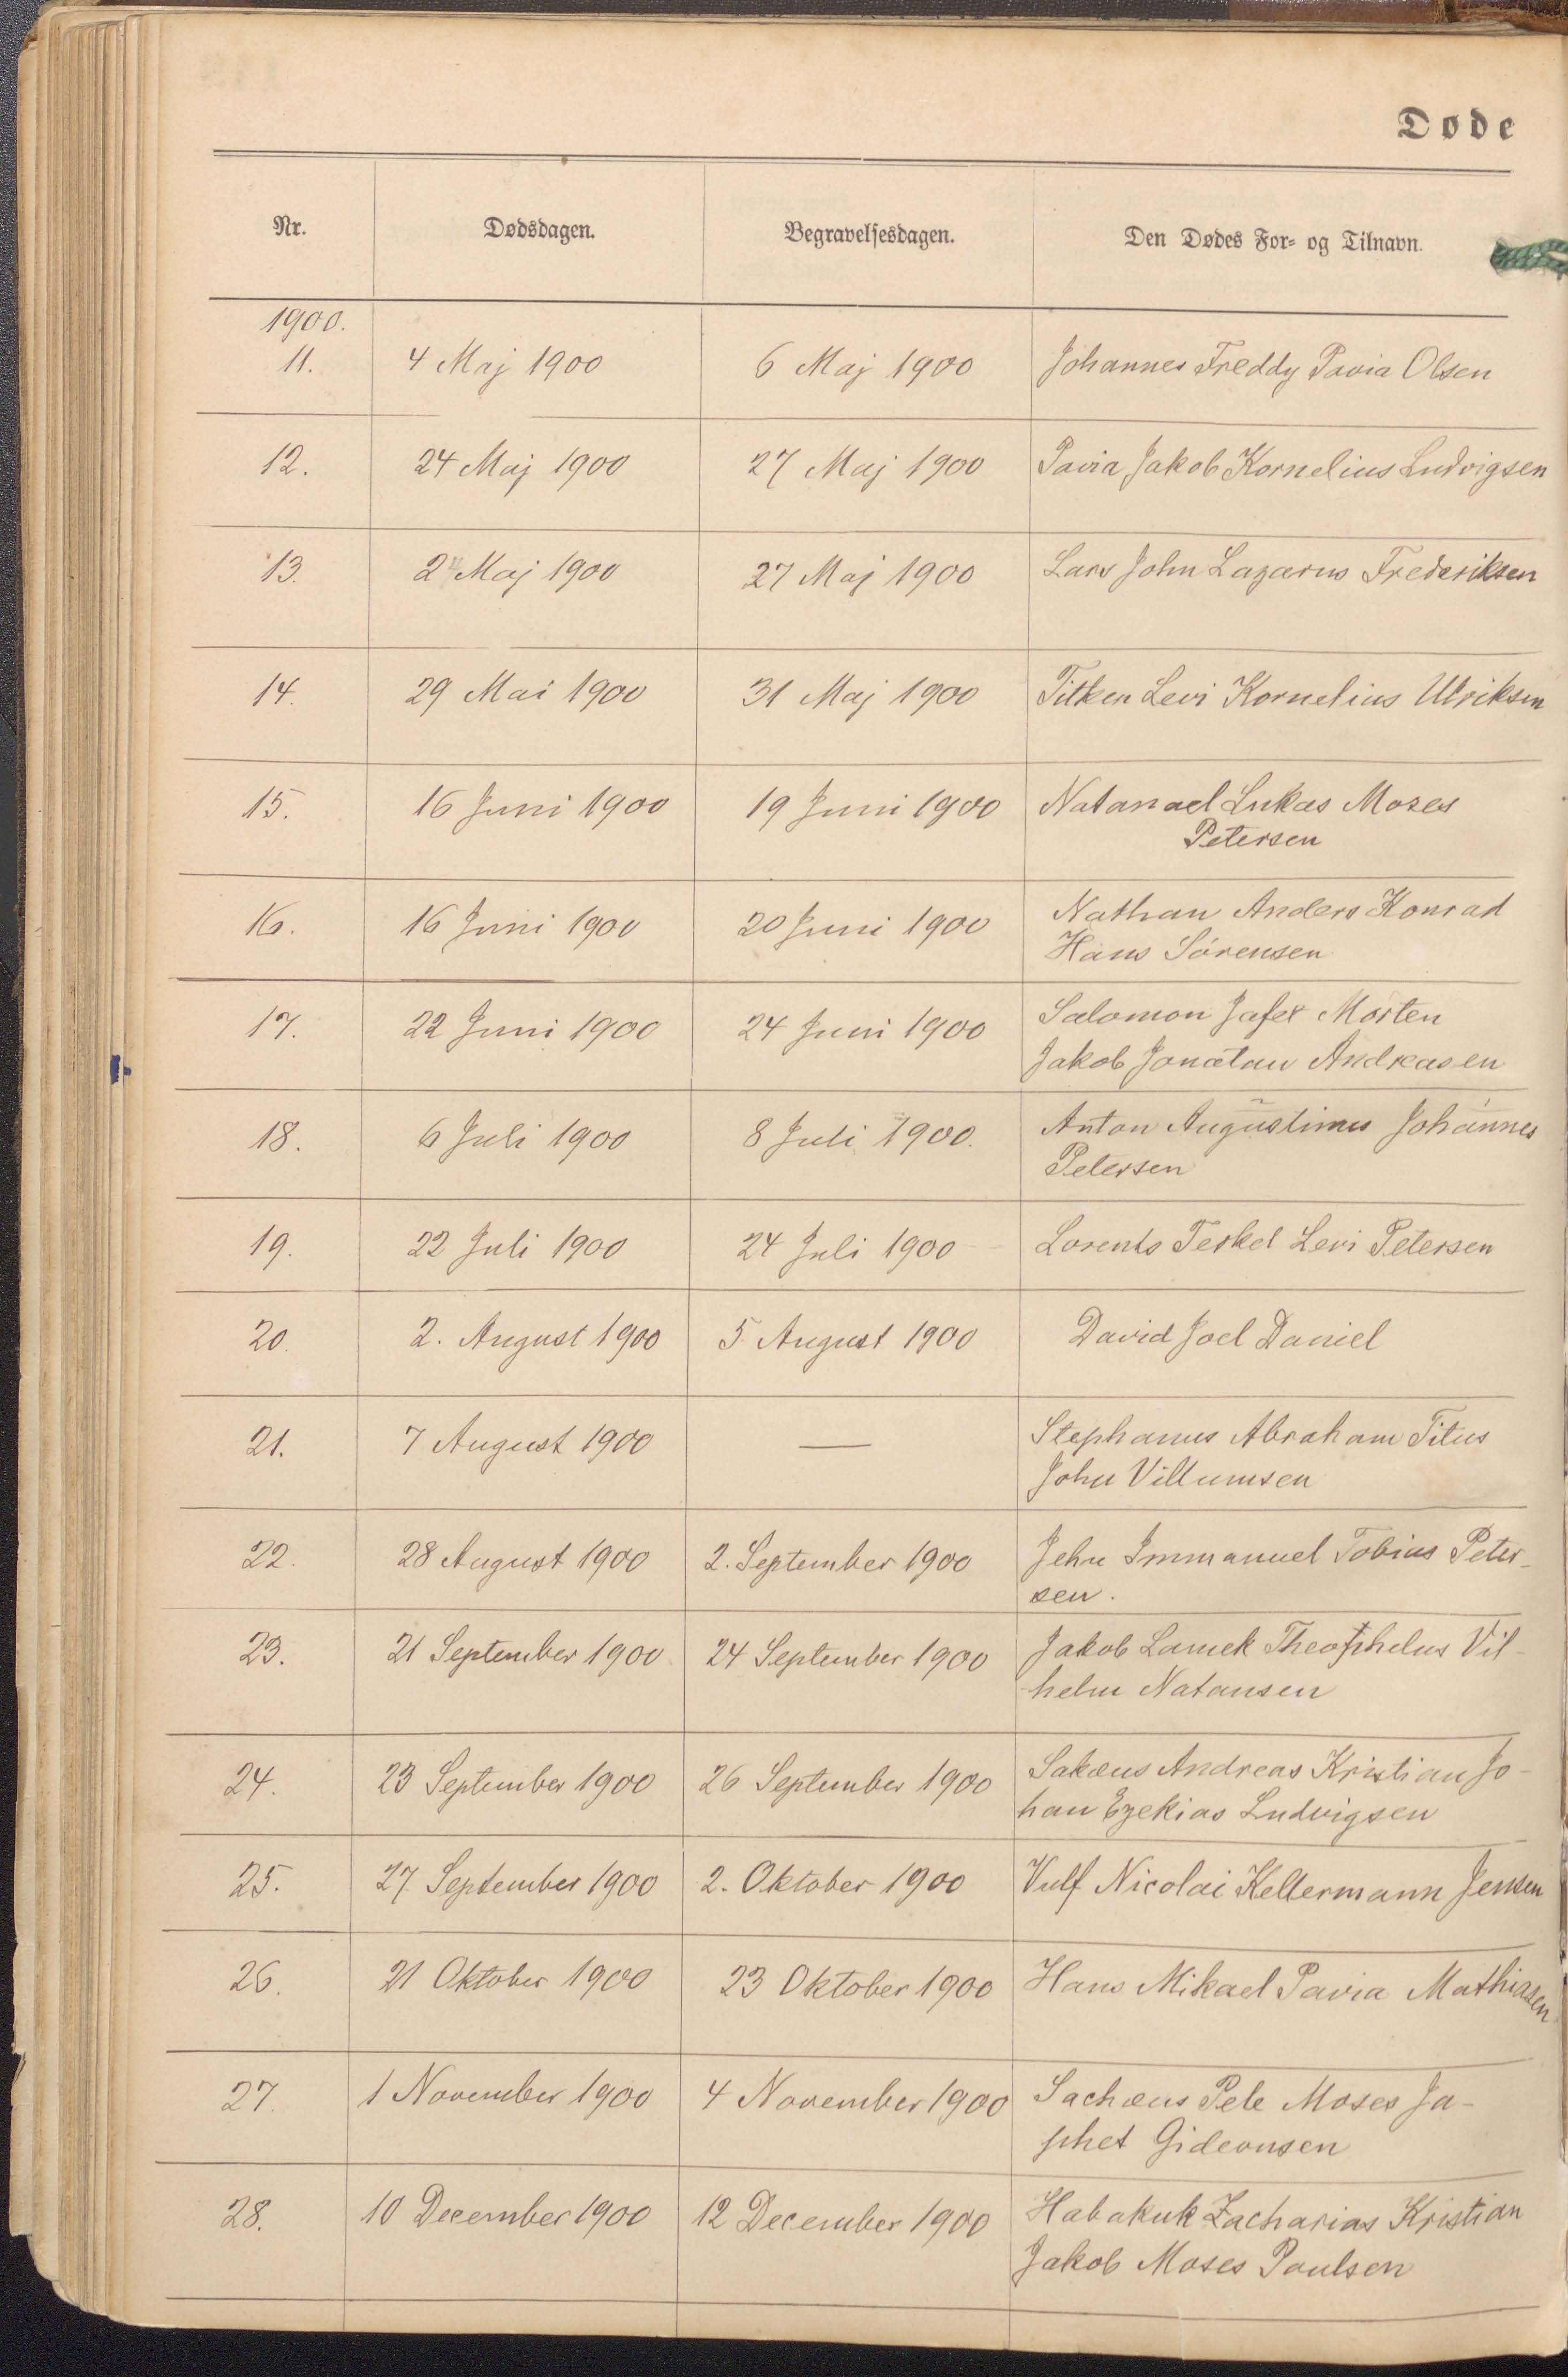 Døde
Nr. Dødsdagen. Begravelsesdagen. Den Dødes For- og Tilnavn.
1900.
11. 4 Maj 1900 6 Maj 1900 Johannes Freddy Pavia Olsen
12. 24 Maj 1900 27 Maj 1900 Pavia Jakob Kornelius Ludvigsen
13. 24 Maj 1900 27 Maj 1900 Lars John Lazarus Frederiksen
14. 29 Mai 1900 31 Maj 1900 Titken Levi Kornelius Ulriksen
15. 16 Juni 1900 19 Juni 1900 Natanael Lukas Moses
Petersen
16. 16 Juni 1900 20 Juni 1900 Nathan Anders Konrad
Hans Sørensen
17. 22 Juni 1900 24 Juni 1900 Salomon Jafet Morten
Jakob Jonatan Andreasen
18. 6 Juli 1900 8 Juli 1900. Anton Augustinus Johannes
Petersen
19. 22 Juli 1900 24 Juli 1900 Lorents Teskel Levi Petersen
20. 2. August 1900 5 August 1900 David Joel Daniel
21. 7 August 1900 — Stephanus Abraham Titus
John Villumsen
22. 28 August 1900 2. September 1900 Jehu Immanuel Tobias Peter-
sen.
23. 21 September 1900 24 September 1900 Jakob Lamek Theophelus Vil-
helm Natansen
24. 23 September 1900 26 September 1900 Sakæus Andreas Kristian Jo-
han Ezekias Ludvigsen
25. 27 September 1900 2. Oktober 1900 Vulf Nicolai Kellermann Jensen
26. 21 Oktober 1900 23 Oktober 1900 Hans Mikael Pavia Mathiasen
27. 1 November 1900 4 November 1900 Sachæus Pele Moses Ja-
phet Gideonsen
28. 10 December 1900 12 December 1900 Habakuk Zacharias Kristian
Jakob Moses Poulsen